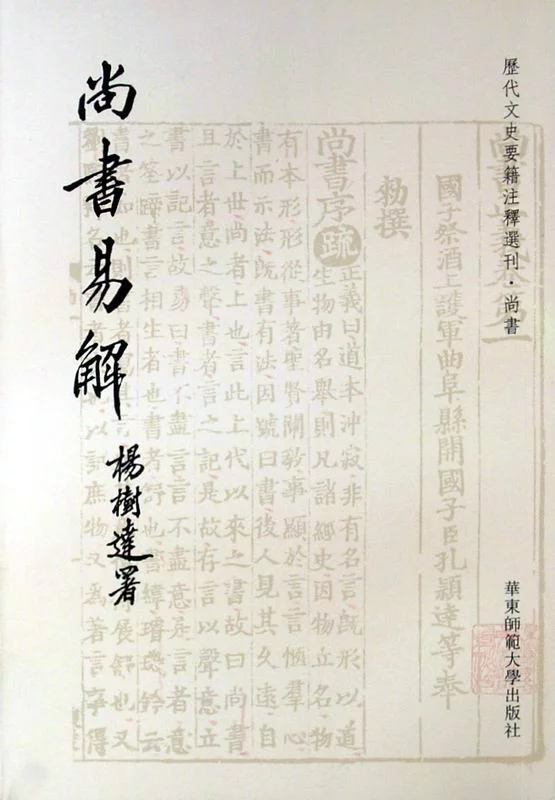 歷代文史要籍注釋選刊·尚書
華東師範大學出版社
尚書易解
楊樹達署
國子祭酒上護軍曲阜縣開國子臣孔穎達等奉
勑撰
尚書序疏正義曰道本沖寂非有名言既形以道
生物由名舉則凡諸經史因物立名物
有本形形從事著聖賢闡教事顯於言言愜羣心
書而示法既書有法因號曰書後人見其久遠自
於上世尚者上也言此上代以來之書故曰尚書
且言者意之聲書者言之記是故存言以聲意立
書以記言故易曰書不盡言言不盡意是言者意
之筌蹄書言相生者也書者舒也書緯璿璣鈐云
展舒也又
庶物又爲著言事得